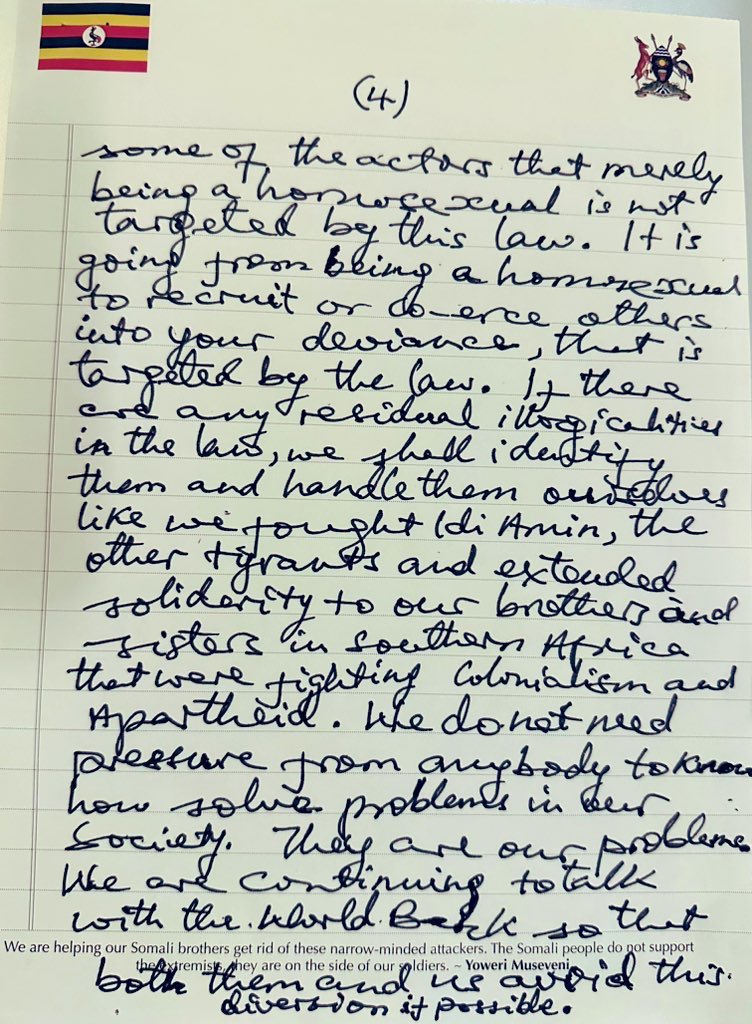 (4)
some of the actors that merely
being a homosexual is not
targeted by this law. It is
going from being a homosexual
to recruit or co-erce others
into your deviance, that is
targeted by the law. If there
are any residual illogicalities
in the law, we shall identify
them and handle them ourselves
like we fought Idi Amin, the
other tyrants and extended
solidarity to our brothers and
sisters in Southern Africa
that were fighting Colonialism and
Apartheid. We do not need
pressure from anybody to know
how solve problems in our
society. They are our problems.
We are continuing to talk
with the World Bank so that
We are helping our Somali brothers get rid of these narrow-minded attackers. The Somali people do not support
the extremists, they are on the side of our soldiers. ~ Yoweri Museveni
both them and us avoid this
diversion if possible.